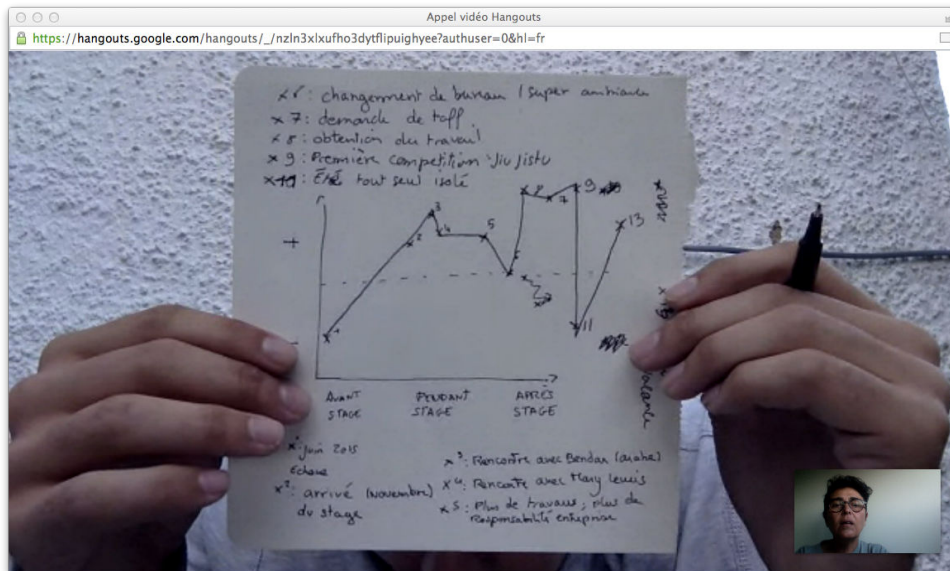 Appel vidéo Hangouts
https://hangouts.google.com/hangouts/_/nzln3xlxufho3dytflipuighyee?authuser=0&hl=fr
: changement de bureau / super ambiance
x 7 : demande de taff
x 8 : obtention du travail
x 9 : Première competition Jiu jistu
: Été tout seul isolé
+
-
1
2
3
4
5
7
9
11
13
AVANT STAGE
PENDANT STAGE
APRÈS STAGE
x¹ juin 2015
x² : arrivé (novembre)
du stage
x³ : Rencontre avec Bendan
x⁴ : Rencontre avec Mary lewis
x⁵ : Plus de travaux, plus de
Responsabilité entreprise